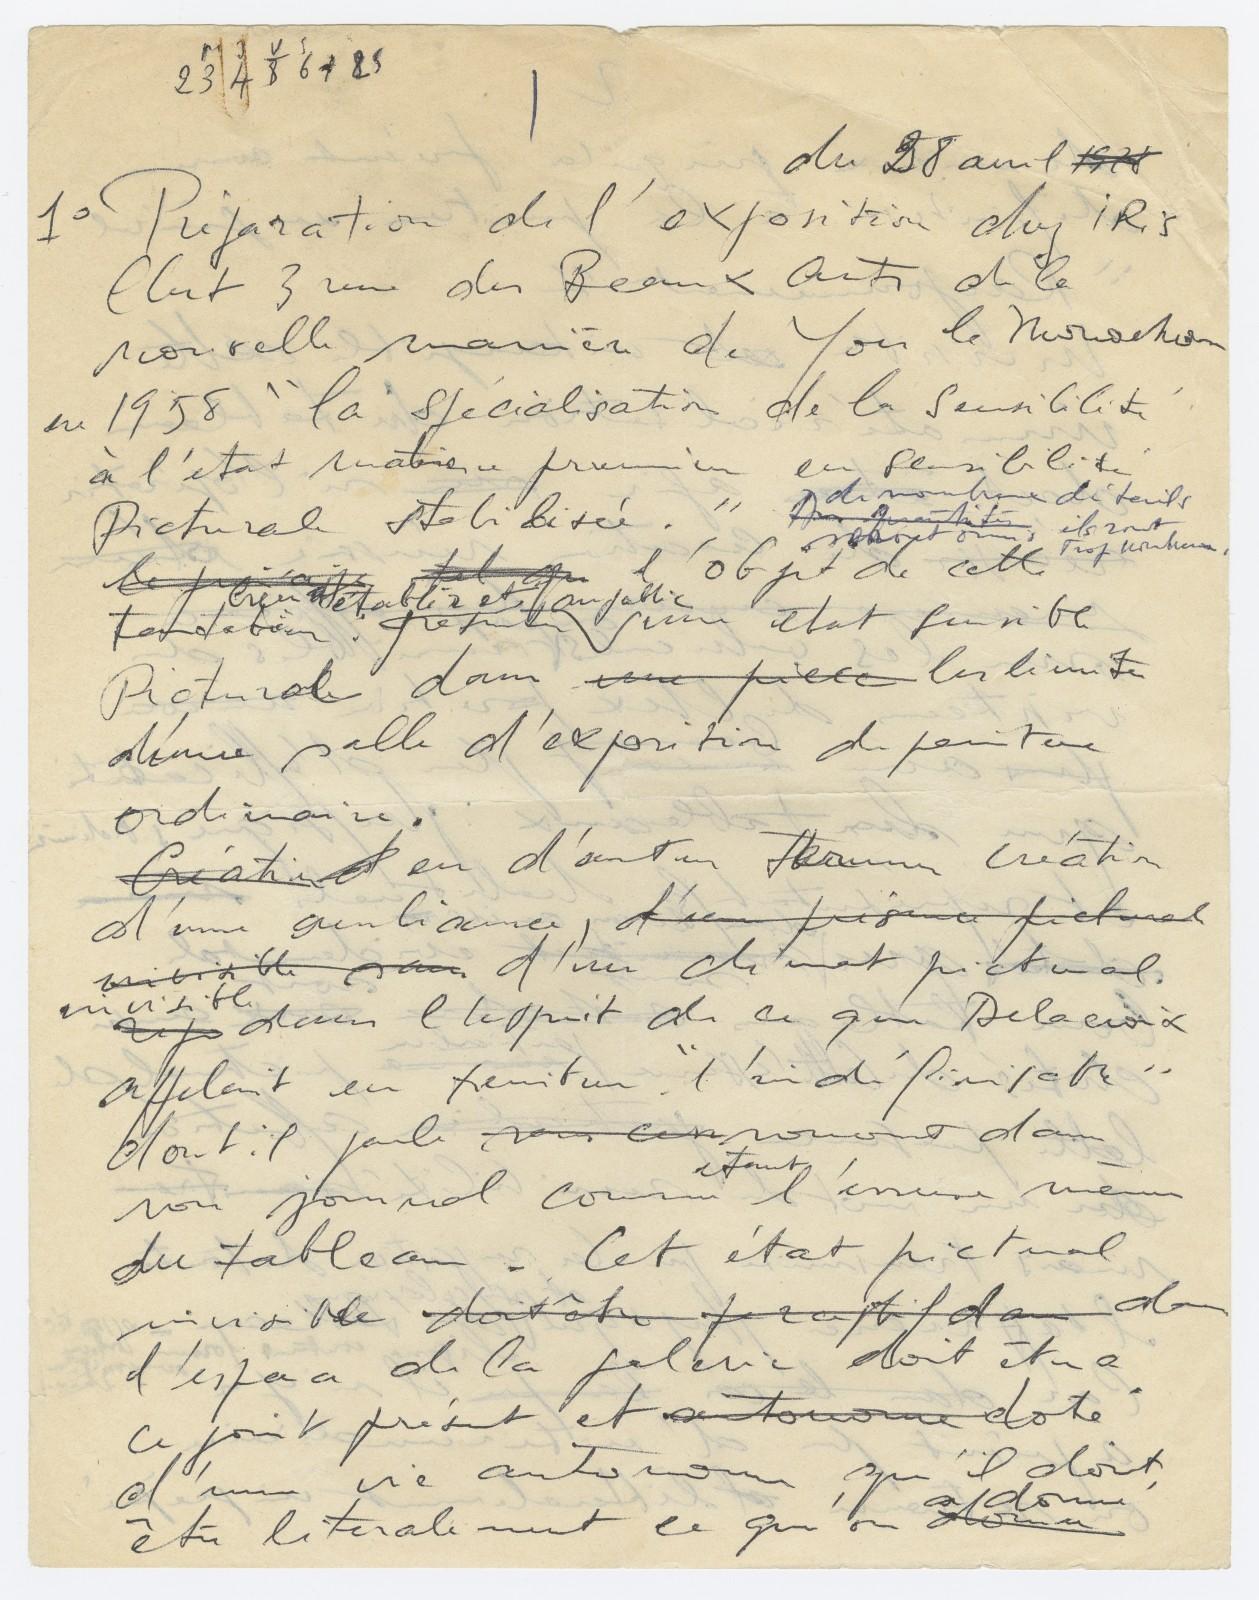 du 28 avril 1958
1° Préparation de l'exposition chez IRis
Clert 3 rue des Beaux Arts de la
nouvelle manière de Yves le Monochrome
en 1958 "la spécialisation de la sensibilité
à l'état matière première en sensibilité
Picturale stabilisée." de nombreux détails
seront omis ils sont
trop nombreux.
l'objet de cette
créer établir et au public
tentative: présenter un état sensible
Pictural dans une pièce les limites
d'une salle d'exposition de peinture
ordinaire.
Création et en d'autres termes création
d'une ambiance, d'une présence picturale
invisible d'un climat pictural
invisible
dans l'esprit de ce que Delacroix
appelait en peinture "l'indéfinissable"
dont il parle souvent dans
étant
son journal comme l'essence même
du tableau. Cet état pictural
invisible doit être perceptif dans dans
l'espace de la galerie doit être a
ce point présent et autonome doté
d'une vie autonome qu'il doit
a donné
être literalement ce qu'on donne